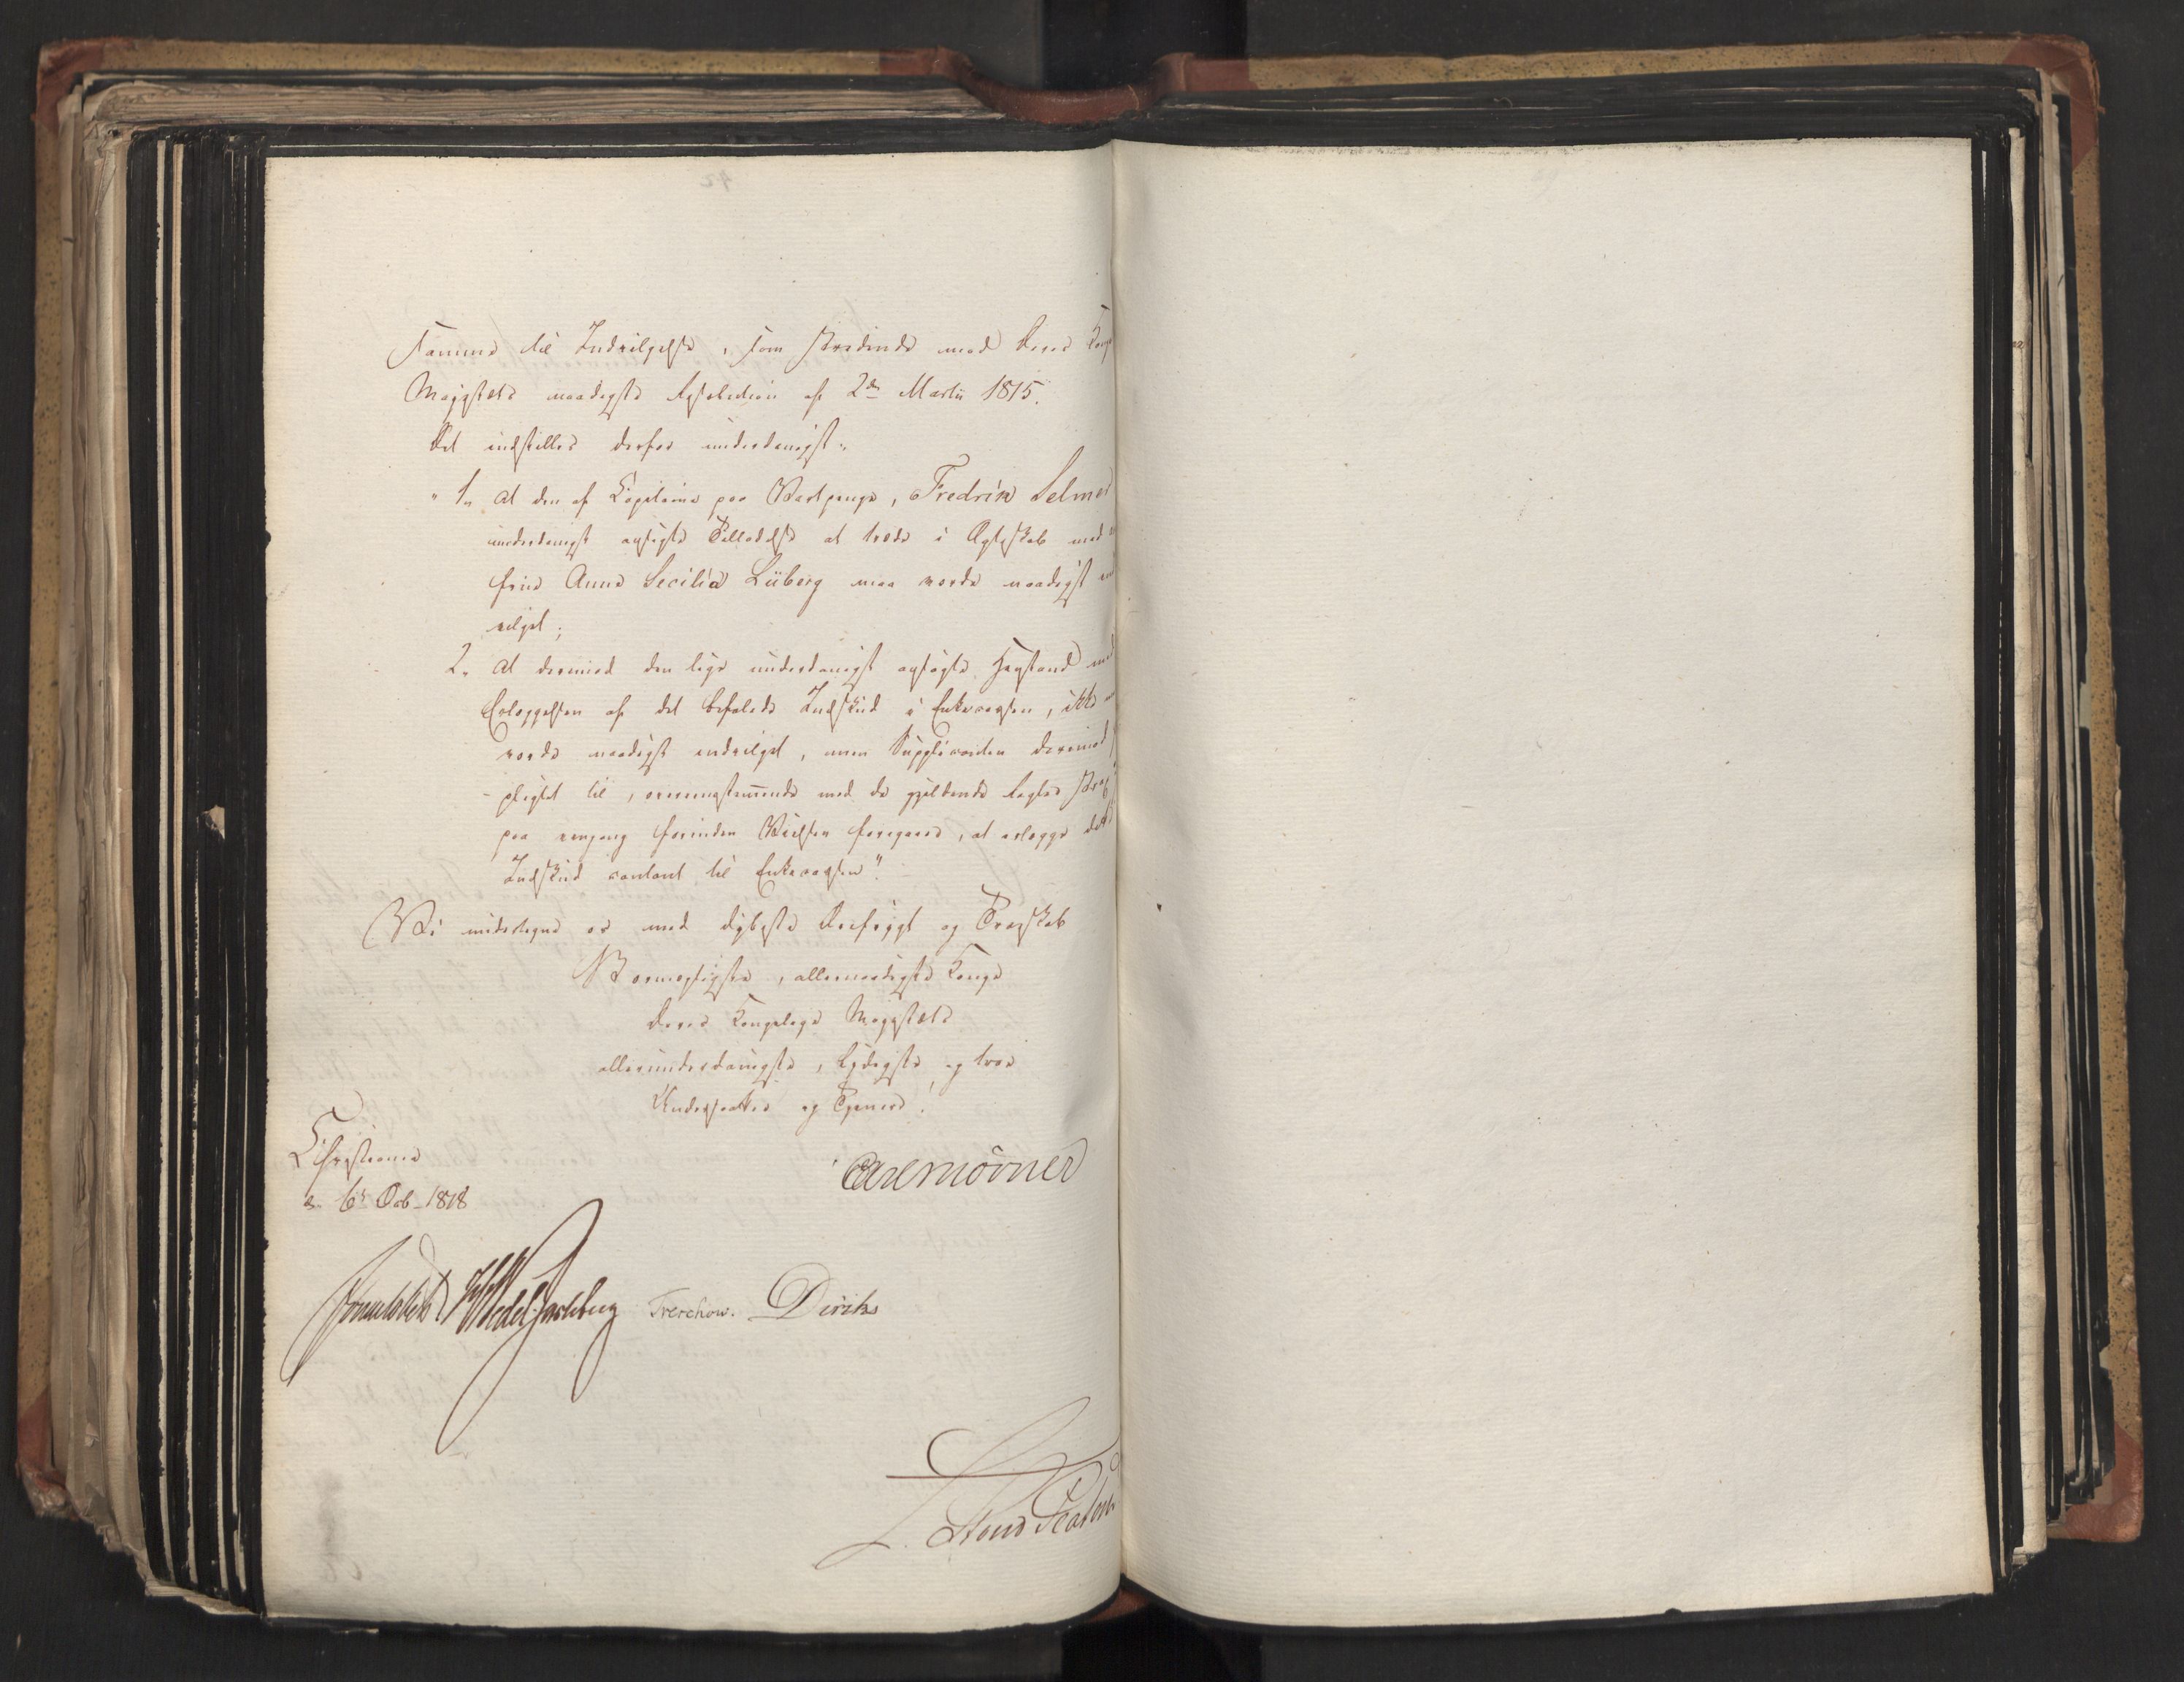 samme til Indvilgelse, som stridende mod Deres Kong
Majestæts naadigste Resolution af 2den Martii 1815.
Det indstilles derfor underdanigst:
"1, at den af Capitaine paa Vartpenge, Fredrik Selmer
underdanigst ansøgte Tilladelse at træde i Ægteskab med
frue Anne Secilia Lüberg maa vorde naadigst ind
vilget;
2, at derimod den lige underdanigst ansøgte Henstand med
Erlæggelsen af det befalede Indskud i Enkecassen, ikke
vorde naadigst indvilget, men Supplicanten derimod
pligtet til, overensstemmende med de gjeldende Regler strax
paa eengang forinden Vielsen foregaaer, at erlægge dette
Indskud contant til Enkecassen".
Vi undertegne os med dybeste Ærefrygt og Troeskab
Stormægtigste, allernaadigste Konge
Deres Kongelige Majestæts
allerunderdanigste, lydigste og troe
Undersaatter og Tjenere!
Christiania
d. 6te Octb. 1818
Carl Mörner
Sommerhielm HWedel Jarlsberg Treschow. Diriks